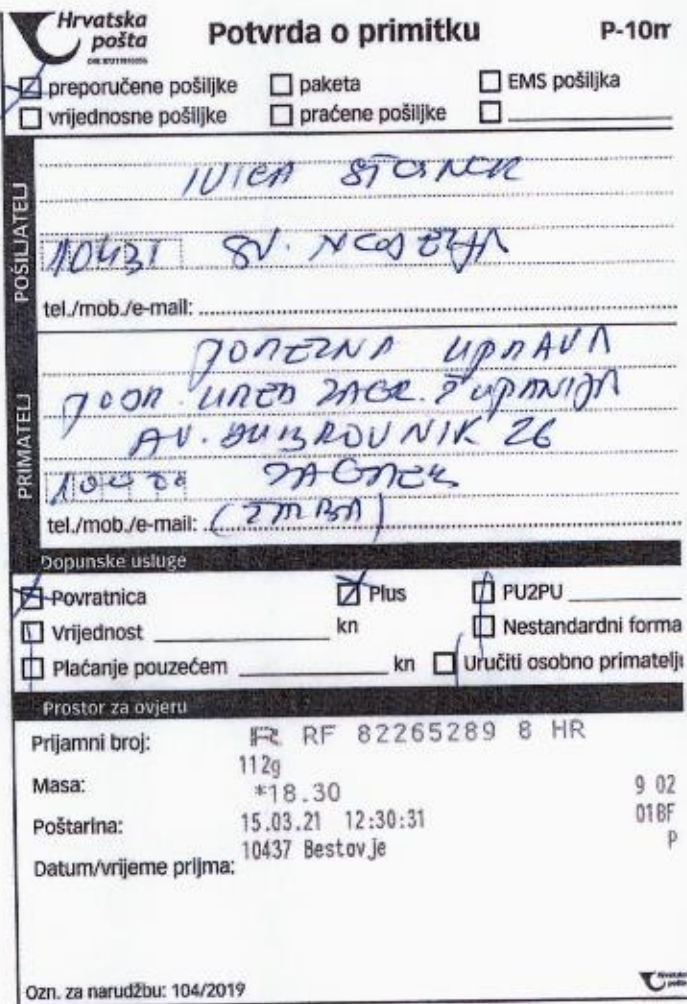 Hrvatska pošta
Potvrda o primitku
P-10m
preporučene pošiljke
paketa
EMS pošiljka
vrijednosne pošiljke
praćene pošiljke
POŠILJATELJ
IVICA
10431 SV. NEDELJA
tel./mob./e-mail:
PRIMATELJ
POREZNA UPRAVA
PODR. URED ZAGR. ŽUPANIJA
AV. DUBROVNIK 26
10000 ZAGREB
tel./mob./e-mail:
Dopunske usluge
Povratnica
Plus
PU2PU
Vrijednost kn
Nestandardni forma
Plaćanje pouzećem kn
Uručiti osobno primatelju
Prostor za ovjeru
Prijamni broj: R RF 82265289 8 HR
112g
Masa: *18.30 9 02
Poštarina: 15.03.21 12:30:31 01BF
10437 Bestovje P
Datum/vrijeme prijma:
Ozn. za narudžbu: 104/2019